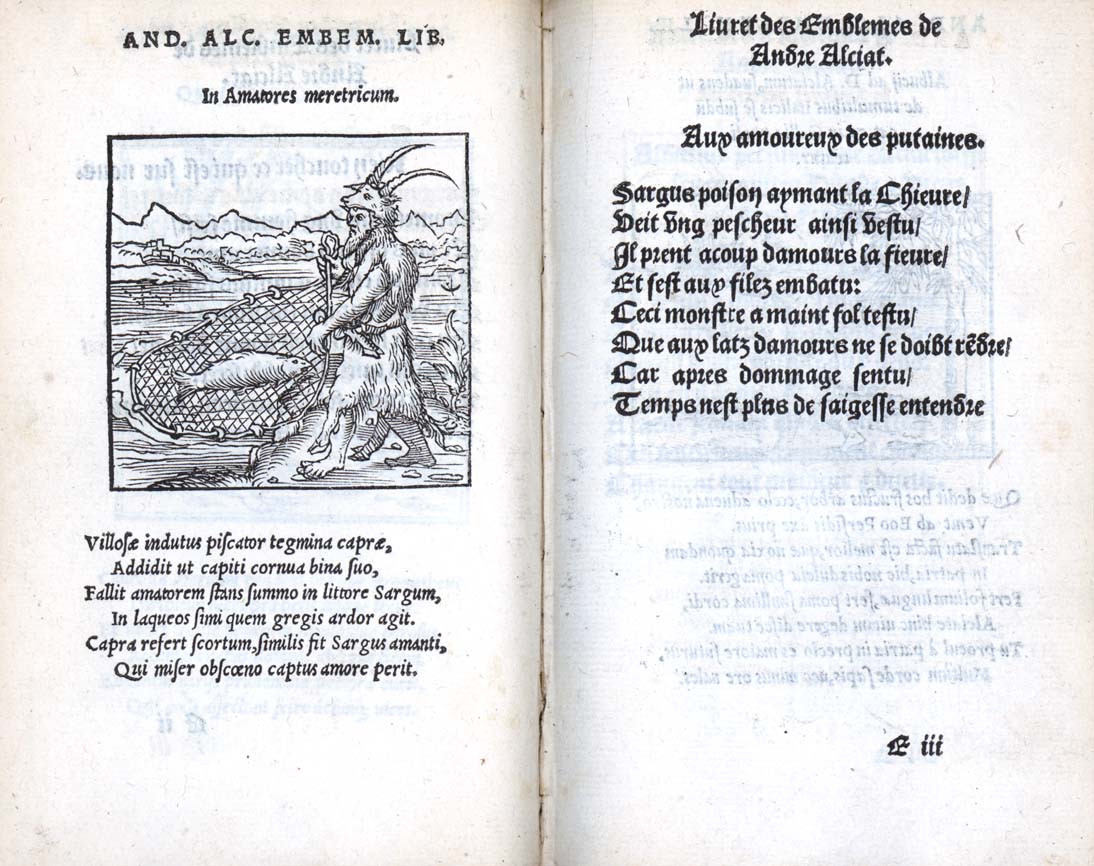 AND. ALC. EMBEM. LIB.
In Amatores meretricum.
Villosæ indutus piscator tegmina capræ,
Addidit ut capiti cornua bina suo,
Fallit amatorem stans summo in littore Sargum,
In laqueos simi quem gregis ardor agit.
Capra refert scortum, similis fit Sargus amanti,
Qui miser obscœno captus amore perit.
Liuret des Emblemes de
Andre Alciat.
Aux amoureux des putaines.
Sargus poison aymant la Chieure/
Veit vng pescheur ainsi vestu/
Il prent acoup damours la fieure/
Et sest aux filez embatu:
Ceci monstre a maint fol testu/
Que aux latz damours ne se doibt rẽdre/
Car apres dommage sentu/
Temps nest plus de saigesse entendre
E iii